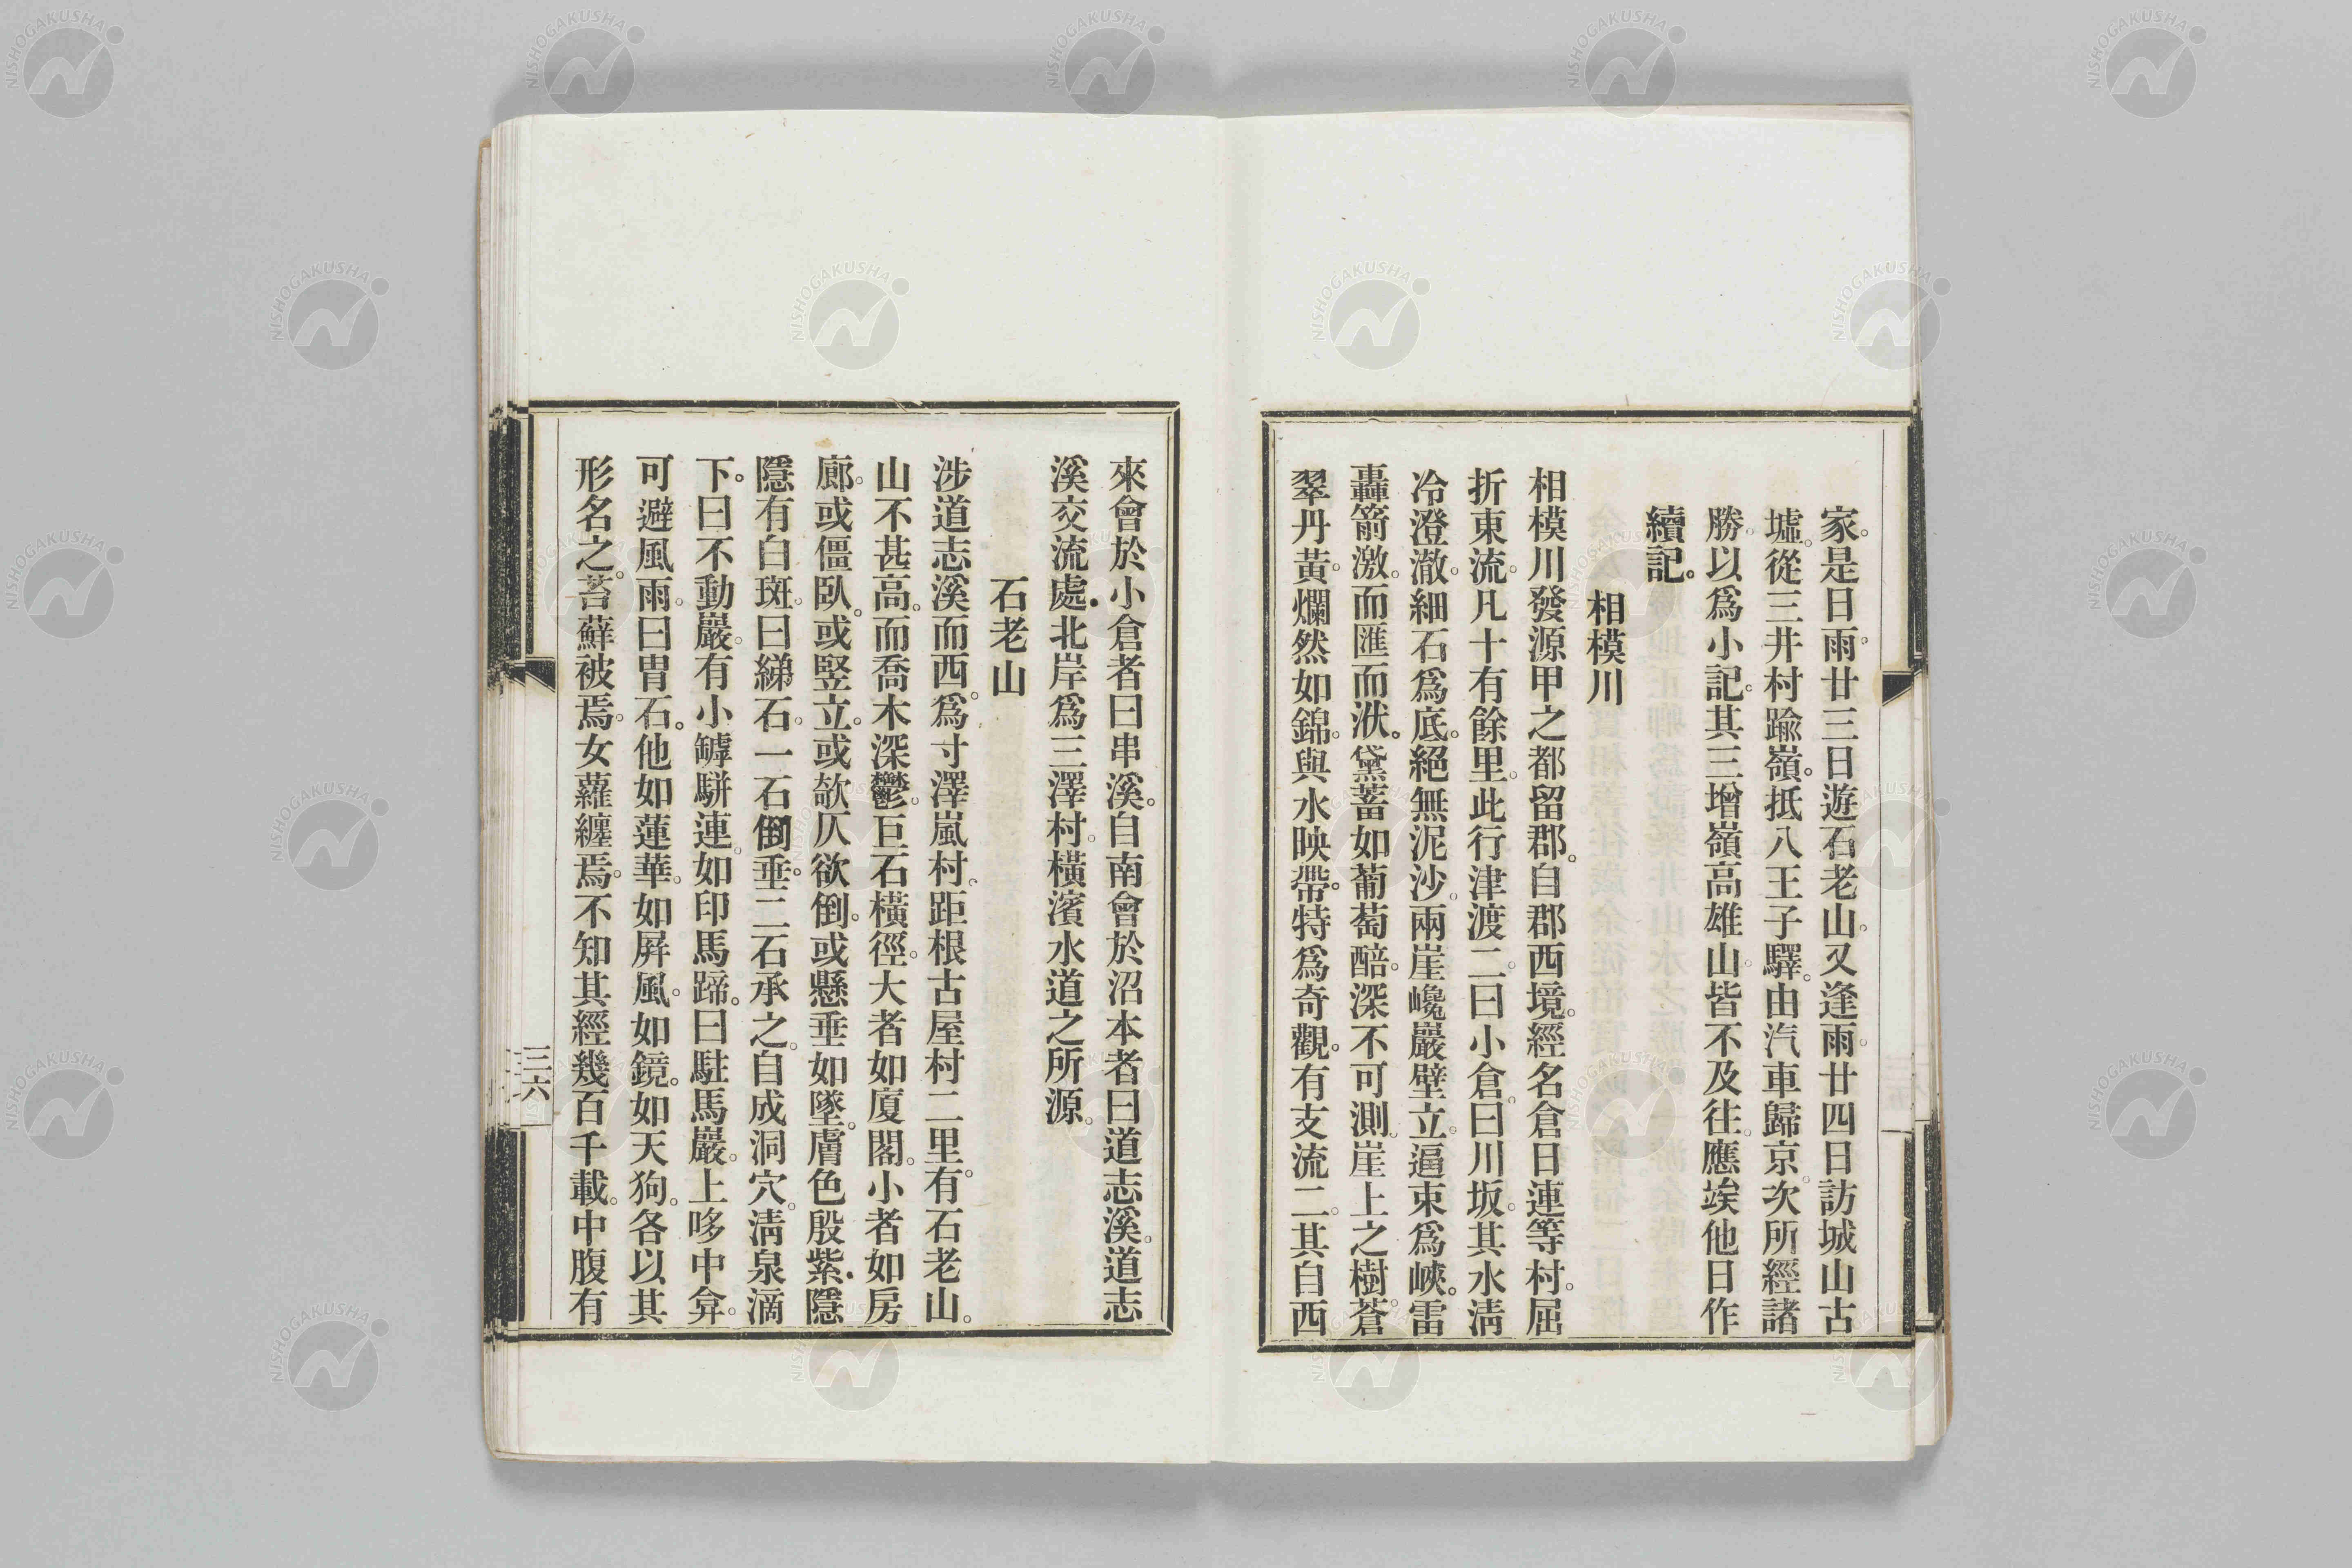 家。是日雨。廿三日遊石老山。又逢雨。廿四日訪城山古
墟。從三井村踰嶺。抵八王子驛。由汽車歸京。次所經諸
勝。以爲小記。其三增嶺高雄山。皆不及往。應竢他日作
續記。
相模川
相模川發源甲之都留郡。自郡西境。經名倉日連等村。屈
折東流。凡十有餘里。此行津渡二。曰小倉。曰川坂。其水淸
冷澄澈。細石爲底。絕無泥沙。兩崖巉巖壁立。逼束爲峽。雷
轟箭激。而匯而洑。黛蓄如葡萄醅。深不可測。崖上之樹。蒼
翠丹黃。爛然如錦。與水映帶。特爲奇觀。有支流二。其自西
來會於小倉者曰串溪。自南會於沼本者曰道志溪。道志
溪交流處。北岸爲三澤村。橫濱水道之所源。
石老山
涉道志溪而西。爲寸澤嵐村。距根古屋村二里。有石老山。
山不甚高。而喬木深鬱。巨石橫徑。大者如廈閣。小者如房
廊。或僵臥。或竪立。或欹仄欲倒。或懸垂如墜。膚色殷紫。隱
隱有白斑。曰綈石。一石倒垂。二石承之。自成洞穴。淸泉滴
下。曰不動巖。有小罅駢連。如印馬蹄。曰駐馬巖。上哆中弇。
可避風雨。曰冑石。他如蓮華。如屛風。如鏡。如天狗。各以其
形名之。苔蘚被焉。女蘿纏焉。不知其經幾百千載。中腹有
三六
NISHOGAKUSHA